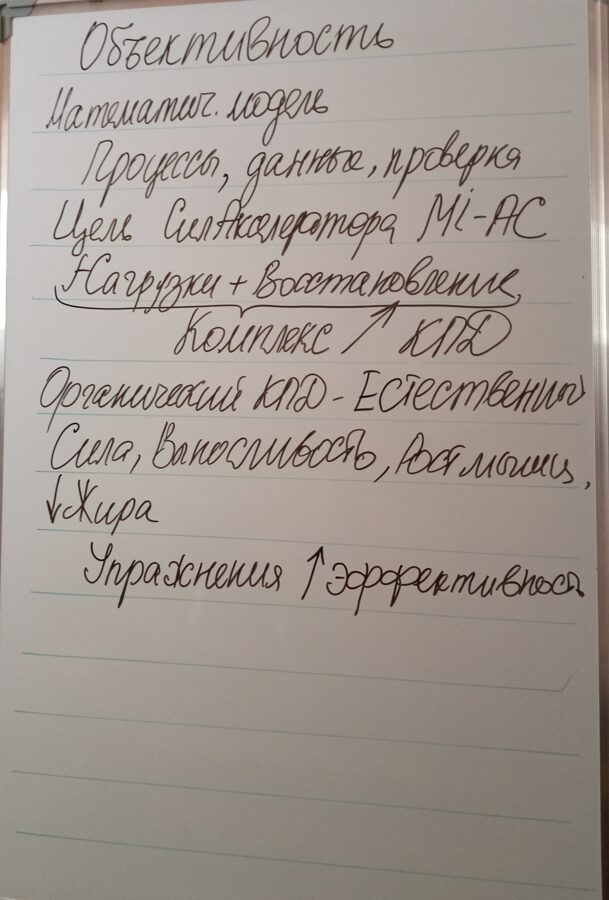 Объективность
Математич. модель
Процессы, данные, проверка
Цель СилАкселератора Mi-AC
Нагрузки + Восстановление,
Комплекс ↑ КПД
Органический КПД - Естественный
Сила, Выносливость, Рост мышц,
↓ Жира
Упражнения ↑ Эффективность